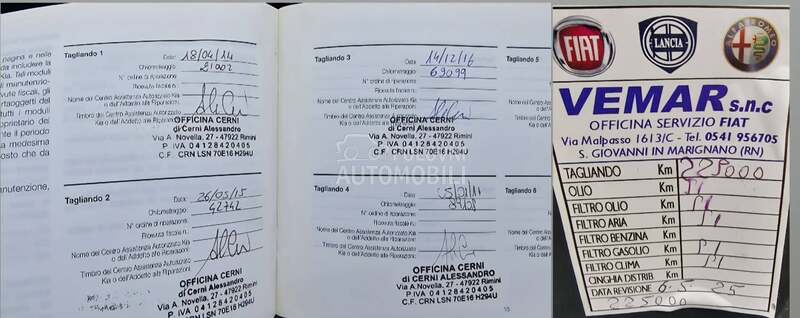 pagina e nelle
da includere la
Kia. Tali moduli
di manutenzio-
vute fiscali, gli
rtaoggetti del
tutti i moduli
roprietario del
nte il periodo
va medesima
osto che da
nutenzione,
Tagliando 1
Data: 18/04/14
Chilometraggio: 21002
N° ordine di riparazione:
Ricevuta fiscale n.:
Nome del Centro Assistenza Autorizzato Kia
o dell'Addetto alle Riparazioni:
Timbro del Centro Assistenza Autorizzato
Kia o dell'Addetto alle Riparazioni:
OFFICINA CERNI
di Cerni Alessandro
Via A. Novella, 27 - 47922 Rimini
P. IVA 04128420405
C.F. CRN LSN 70E16 H294U
Tagliando 2
Data: 26/05/15
Chilometraggio: 42742
N° ordine di riparazione:
Ricevuta fiscale n.:
Nome del Centro Assistenza Autorizzato Kia
o dell'Addetto alle Riparazioni:
Timbro del Centro Assistenza Autorizzato
Kia o dell'Addetto alle Riparazioni:
OFFICINA CERNI
di Cerni Alessandro
Via A. Novella, 27 - 47922 Rimini
P. IVA 04128420405
C.F. CRN LSN 70E16 H294U
Tagliando 3
Data: 14/12/16
Chilometraggio: 69099
N° ordine di riparazione:
Ricevuta fiscale n.:
Nome del Centro Assistenza Autorizzato Kia
o dell'Addetto alle Riparazioni:
Timbro del Centro Assistenza Autorizzato
Kia o dell'Addetto alle Riparazioni:
OFFICINA CERNI
di Cerni Alessandro
Via A. Novella, 27 - 47922 Rimini
P. IVA 04128420405
C.F. CRN LSN 70E16 H294U
POLOVNI
AUTOMOBILI
Tagliando 4
Data:
Chilometraggio:
N° ordine di riparazione:
Ricevuta fiscale n.:
Nome del Centro Assistenza Autorizzato Kia
o dell'Addetto alle Riparazioni:
Timbro del Centro Assistenza Autorizzato
Kia o dell'Addetto alle Riparazioni:
OFFICINA CERNI
di CERNI ALESSANDRO
Via A. Novella, 27 - 47922 Rimini
P. IVA 04128420405
C.F. CRN LSN 70E16 H294U
Tagliando 5
Nome del Ce
o dell
Timbro del
Kia o dell'A
Tagliando 6
Nome del C
o dell
Timbro del
Kia o dell'A
FIAT
LANCIA
ALFA ROMEO
VEMAR s.n.c
OFFICINA SERVIZIO FIAT
Via Malpasso 1613/C - Tel. 0541 956705
S. GIOVANNI IN MARIGNANO (RN)
TAGLIANDO Km 225000
OLIO Km
FILTRO OLIO Km
FILTRO ARIA Km
FILTRO BENZINA Km
FILTRO GASOLIO Km
FILTRO CLIMA Km
CINGHIA DISTRIB. Km
DATA REVISIONE 6.5.25
225000